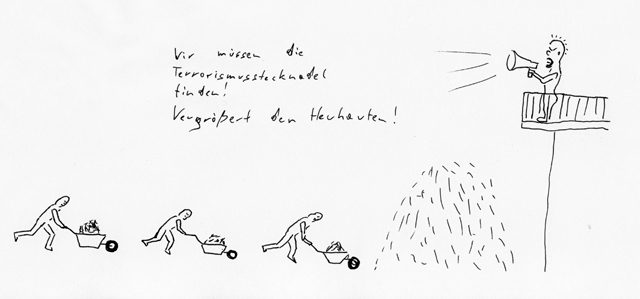 Wir müssen die
Terrorismusstecknadel
finden!
Vergrößert den Heuhaufen!